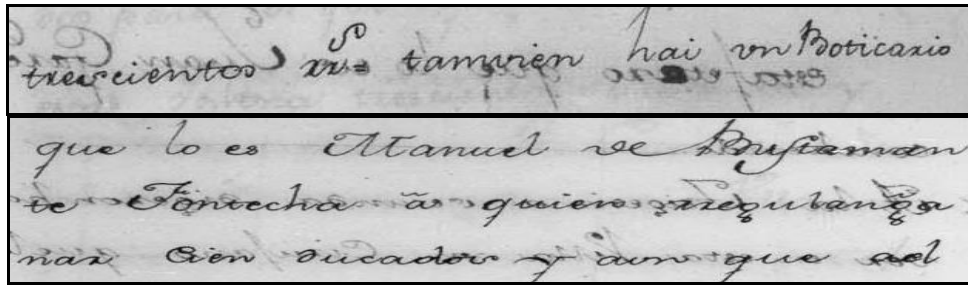 trescientos rrs= tamvien hai vn Boticario
que lo es Manuel de Bustaman
te Fontecha â quien rregulan ga
nar Cien ducados y aun que ael